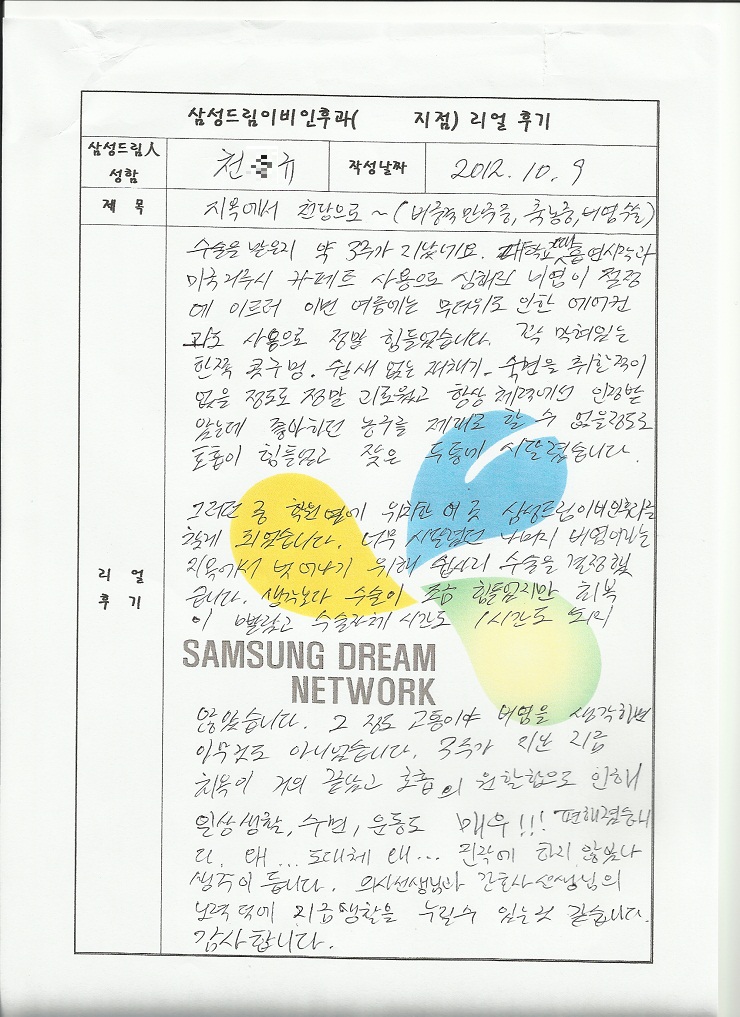 삼성드림이비인후과( 지점) 리얼 후기
삼성드림人
성함
천 규
작성날짜
2012. 10. 9
제 목
지옥에서 천당으로 ~ (비중격만곡증, 축농증, 비염수술)
리 얼
후 기
수술을 받은지 약 3주가 지났네요. 대학교때 흡연시작과
미국거주시 카페트 사용으로 심해진 비염이 절정
에 이르러 이번 여름에는 무더위로 인한 에어컨
과도 사용으로 정말 힘들었습니다. 꽉 막혀있는
한쪽 콧구멍. 쉴새 없는 재채기. 숙면을 취한적이
없을 정도로 정말 괴로웠고 항상 체력에선 인정받
았는데 좋아하던 농구를 제대로 할 수 없을정도로
호흡이 힘들었고 잦은 두통에 시달렸습니다.
그러던 중 학원옆에 위치한 이 곳 삼성드림이비인후과를
찾게 되었습니다. 너무 시달렸던 나머지 비염이라는
지옥에서 벗어나기 위해 쉽사리 수술을 결정했
습니다. 생각보다 수술이 조금 힘들었지만 회복
이 빨랐고 수술자체 시간도 1시간도 되지
SAMSUNG DREAM
NETWORK
않았습니다. 그 정도 고통이야 비염을 생각하면
아무것도 아니었습니다. 3주가 지난 지금
치료이 거의 끝났고 호흡의 원활함으로 인해
일상생활, 수면, 운동도 매우!!! 편해졌습니
다. 왜... 도대체 왜... 진작에 하지 않았나
생각이 듭니다. 의사선생님과 간호사선생님의
노력 덕에 지금생활을 누릴수 있는것 같습니다.
감사합니다.